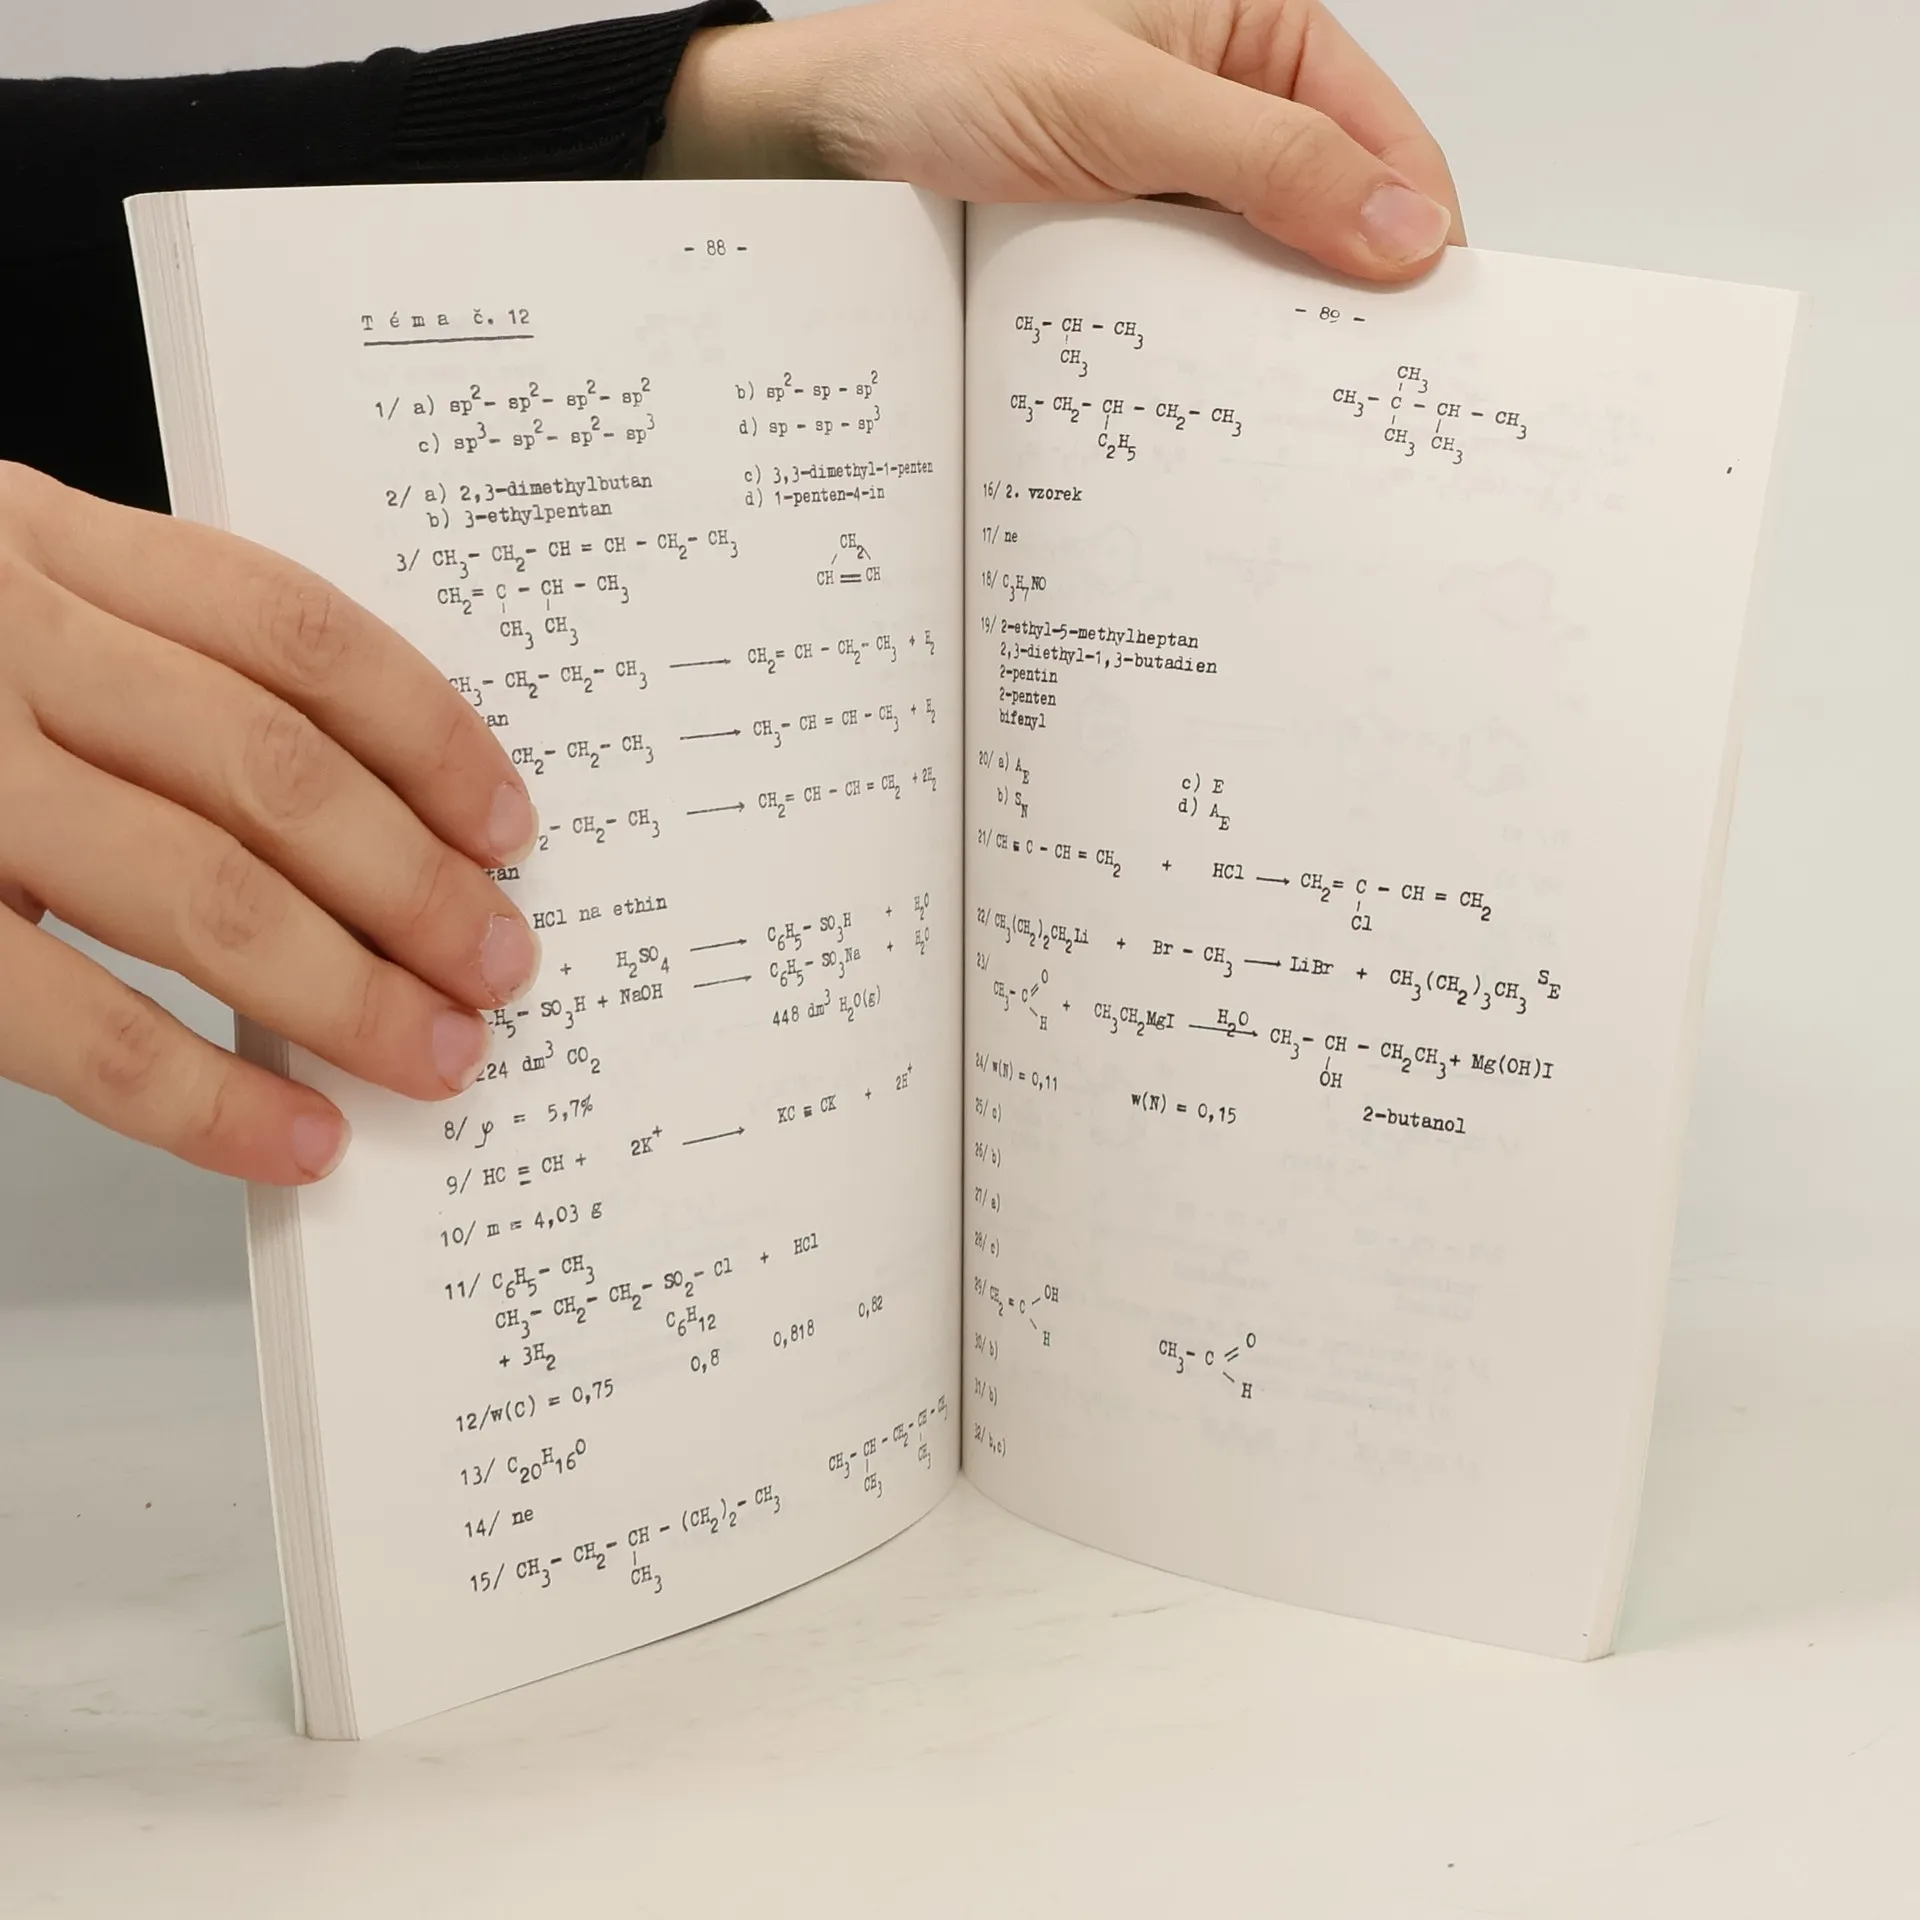 - 88 -
Téma č. 12
1/ a) sp²- sp²- sp²- sp² b) sp²- sp - sp²
c) sp³- sp²- sp²- sp³ d) sp - sp - sp³
2/ a) 2,3-dimethylbutan c) 3,3-dimethyl-1-penten
b) 3-ethylpentan d) 1-penten-4-in
3/ CH₃- CH₂- CH = CH - CH₂- CH₃ CH₂
CH₂= C - CH - CH₃ CH = CH
CH₃ CH₃
CH₃- CH₂- CH₂- CH₃ ⟶ CH₂= CH - CH₂- CH₃ + H₂
CH₂- CH₂- CH₃ ⟶ CH₃- CH = CH - CH₃ + H₂
- CH₂- CH₃ ⟶ CH₂= CH - CH = CH₂ + 2H₂
HCl na ethin
+ H₂SO₄ ⟶ C₆H₅- SO₃H + H₂O
H₅- SO₃H + NaOH ⟶ C₆H₅- SO₃Na + H₂O
224 dm³ CO₂ 448 dm³ H₂O(g)
8/ φ = 5,7%
9/ HC ≡ CH + 2K⁺ ⟶ KC ≡ CK + 2H⁺
10/ m = 4,03 g
11/ C₆H₅- CH₃
CH₃- CH₂- CH₂- SO₂- Cl + HCl
+ 3H₂ C₆H₁₂
12/w(C) = 0,75 0,8 0,818 0,82
13/ C₂₀H₁₆O
14/ ne
15/ CH₃- CH₂- CH - (CH₂)₂- CH₃ CH₃- CH - CH₂- CH - CH₃
CH₃ CH₃ CH₃
- 89 -
CH₃- CH - CH₃
CH₃
CH₃
CH₃- C - CH - CH₃
CH₃ CH₃
CH₃- CH₂- CH - CH₂- CH₃
C₂H₅
16/ 2. vzorek
17/ ne
18/ C₃H₇NO
19/ 2-ethyl-5-methylheptan
2,3-diethyl-1,3-butadien
2-pentin
2-penten
bifenyl
20/ a) A_E c) E
b) S_N d) A_E
21/ CH ≡ C - CH = CH₂ + HCl ⟶ CH₂= C - CH = CH₂
Cl
22/ CH₃(CH₂)₂CH₂Li + Br - CH₃ ⟶ LiBr + CH₃(CH₂)₃CH₃ S_E
23/ O
CH₃- C + CH₃CH₂MgI H₂O ⟶ CH₃- CH - CH₂CH₃+ Mg(OH)I
H OH
2-butanol
24/ w(N) = 0,11 w(N) = 0,15
25/ c)
26/ b)
27/ a)
28/ c)
29/ CH₂ = C OH H
CH₃- C O H
30/ b)
31/ b)
32/ b,c)